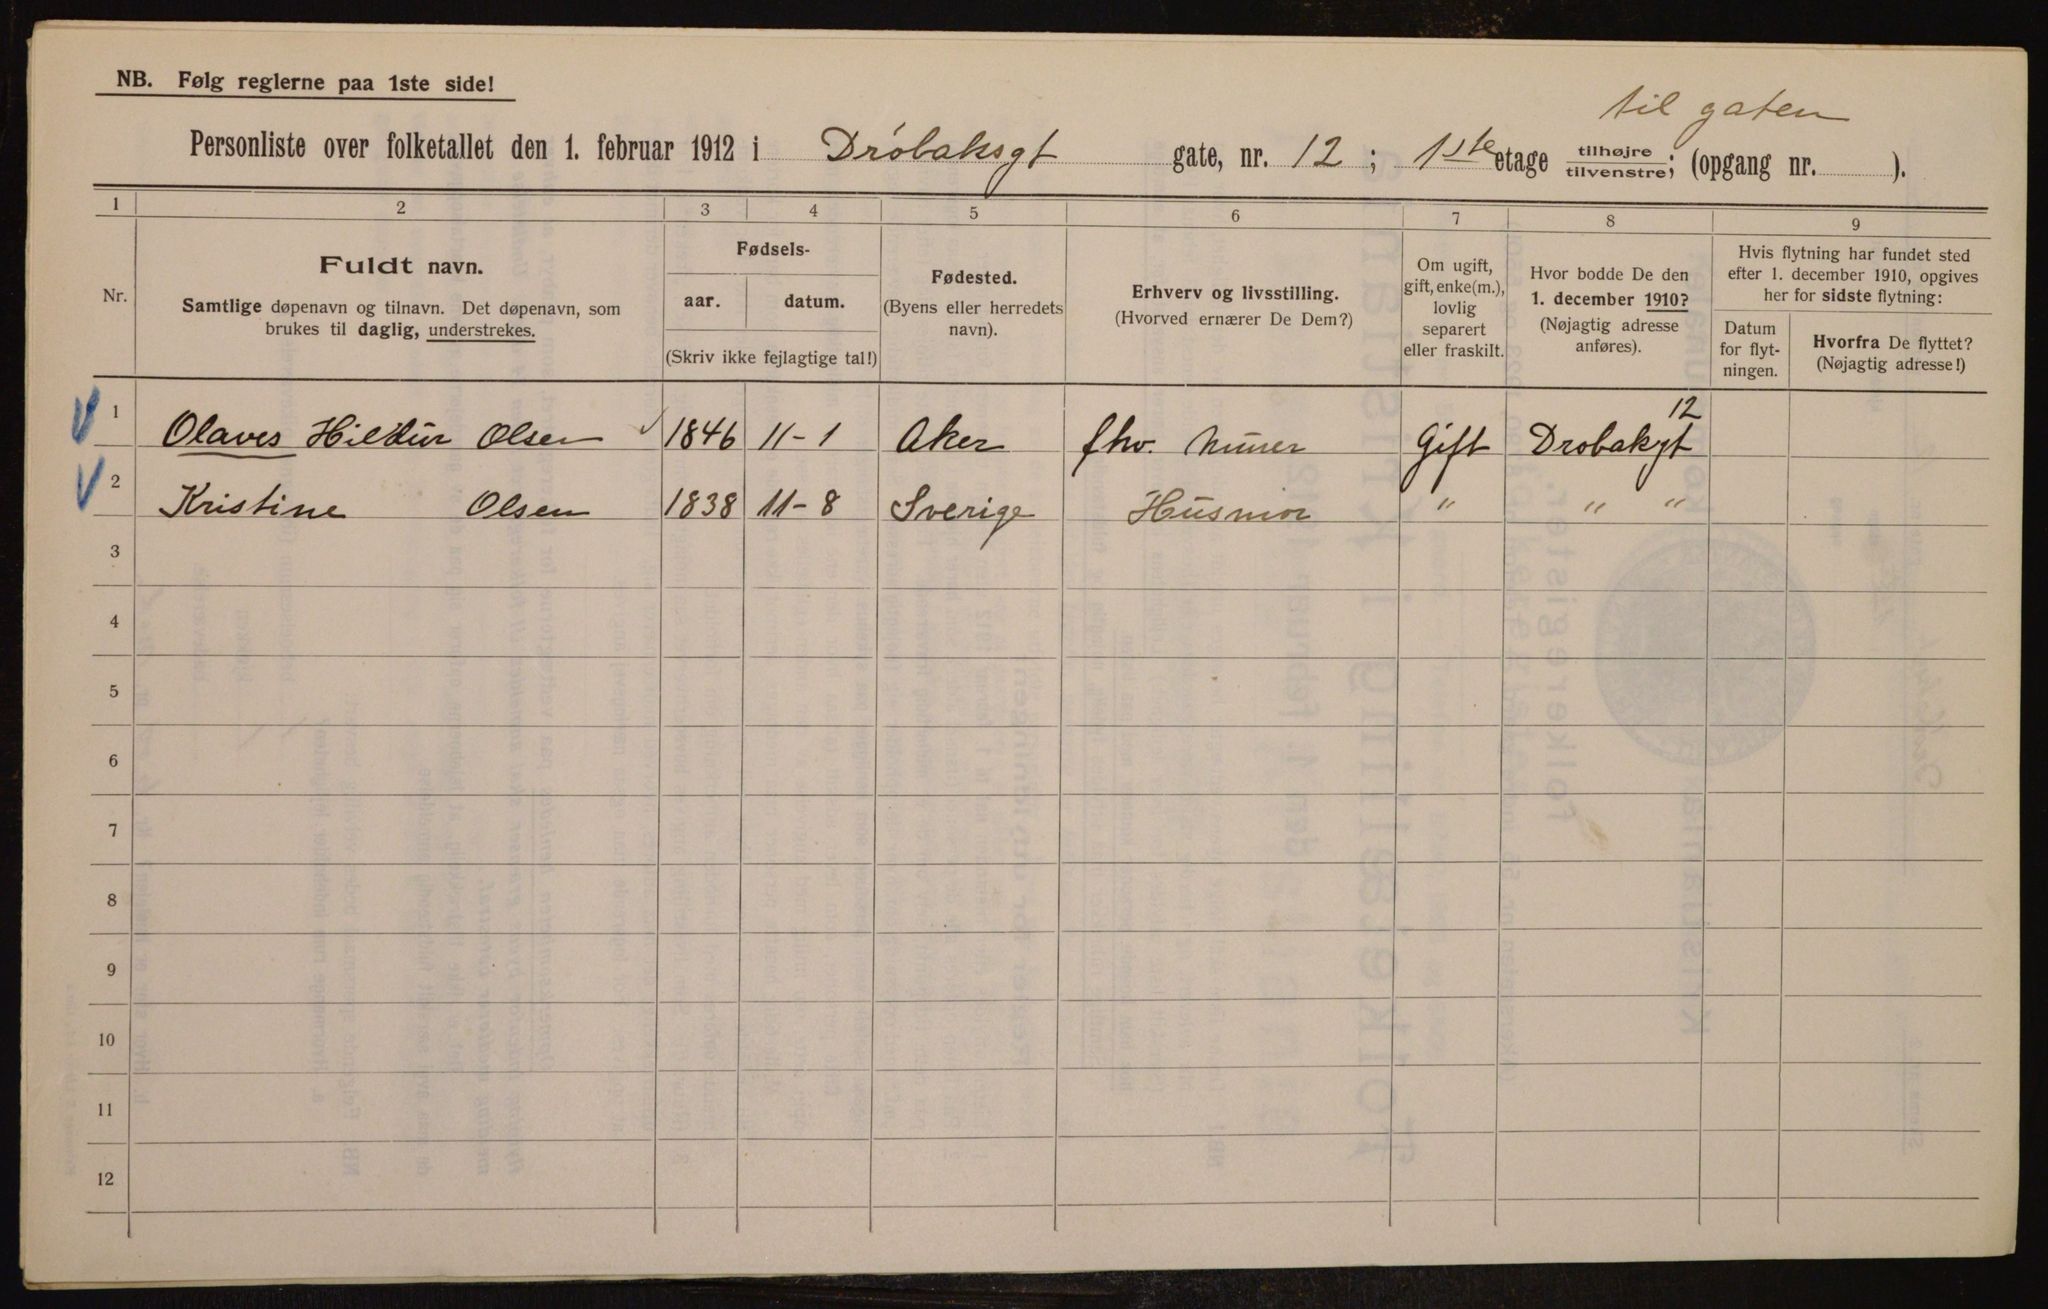 NB. Følg reglerne paa 1ste side!
til gaten
Personliste over folketallet den 1. februar 1912 i Drøbaksgt gate, nr. 12 ; 1ste etage tilhøjre tilvenstre; (opgang nr. ).
1 2 3 4 5 6 7 8 9
Nr.
Fuldt navn.
Samtlige døpenavn og tilnavn. Det døpenavn, som
brukes til daglig, understrekes.
Fødsels-
aar. datum.
(Skriv ikke fejlagtige tal!)
Fødested.
(Byens eller herredets
navn).
Erhverv og livsstilling.
(Hvorved ernærer De Dem?)
Om ugift,
gift, enke(m.),
lovlig
separert
eller fraskilt.
Hvor bodde De den
1. december 1910?
(Nøjagtig adresse
anføres).
Hvis flytning har fundet sted
efter 1. december 1910, opgives
her for sidste flytning:
Datum
for flyt-
ningen.
Hvorfra De flyttet?
(Nøjagtig adresse!)
1 Olaves Hildur Olsen 1846 11-1 Aker fhv. Murer Gift Drobakgt 12
2 Kristine Olsen 1838 11-8 Sverige Husmor " " "
3
4
5
6
7
8
9
10
11
12